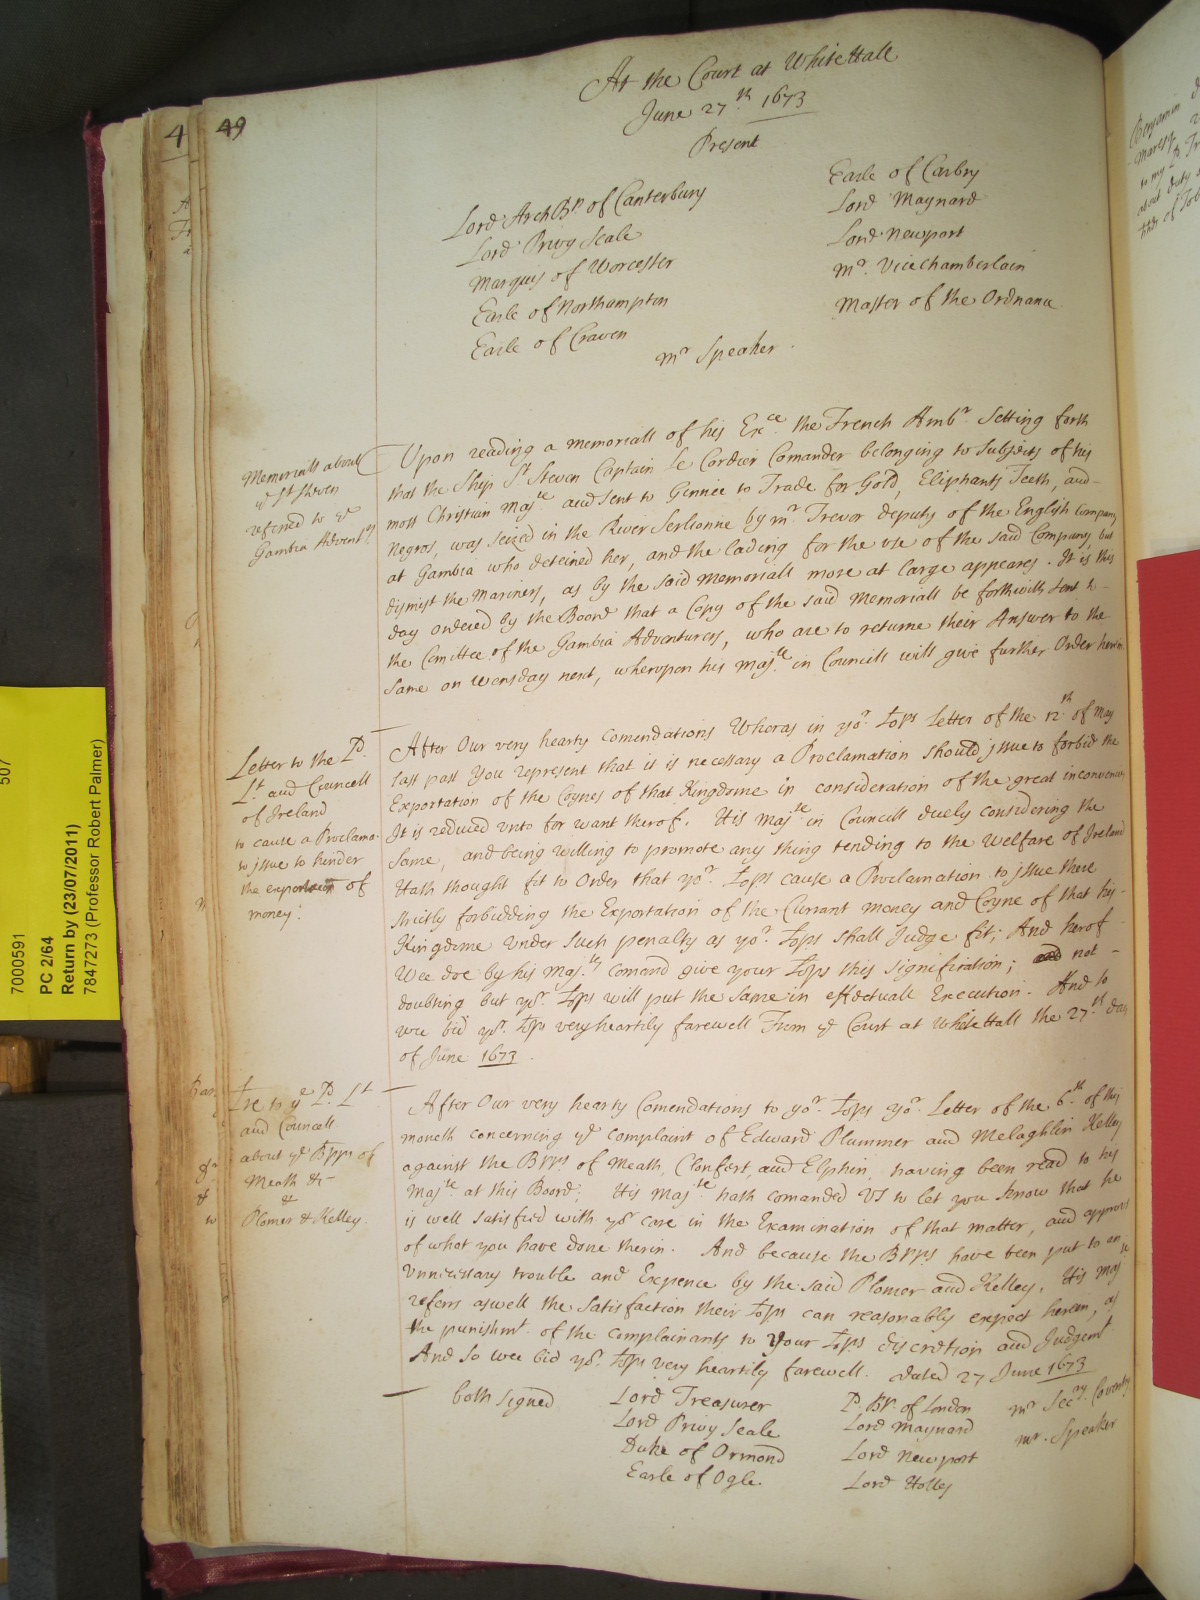 49
At the Court at WhiteHall
June 27th 1673
Present
Lord ArchBp. of Canterbury
Lord Privy Seale
Marquis of Worcester
Earle of Northampton
Earle of Craven
Earle of Carbry
Lord Maynard
Lord Newport
Mr. Vicechamberlain
Master of the Ordnance
Mr Speaker
Memoriall about
ye St Steven
referred to ye
Gambia Adventrs
Upon reading a memoriall of his Exce. the French Ambr. Setting forth
that the Ship St Steven Captain Le Cordier Comander belonging to Subjects of his
most Christian Majte and sent to Ginnie to Trade for Gold, Eliphants Teeth, and
Negros, was seized in the River Serlionne by mr. Trevor deputy of the English Company
at Gambia who deteined her, and the lading for the use of the said Company, but
dismist the Mariners, as by the said Memoriall more at large appeares. It is this
day ordered by the Board that a Copy of the said Memoriall be forthwith sent to
the Comittee of the Gambia Adventurers, who are to returne their Answer to the
same on Wensday next, wherupon his Majte. in Councill will give further Order herein
Letter to the Ld.
Lt. and Councell
of Ireland
to cause a Proclama:
to issue to hinder
the exportacon of
money:
After Our very hearty Comendations Wheras in yor. Lopps Letter of the 12th of May
last past You represent that it is necessary a Proclamation should issue to forbid the
Exportation of the Coynes of that Kingdome in consideration of the great inconveniency
It is reduced unto for want therof. His Majte in Councill duely considering the
same, and being willing to promote any thing tending to the Welfare of Ireland
Hath thought fit to Order that yor. Lopps cause a Proclamation to issue there
strictly forbidding the Exportation of the Currant money and Coyne of that his
Kingdome under such penalty as yor. Lopps shall Judge fit; And herof
Wee doe by his Majtes comand give your Lopps this signification; and not
doubting but yor. Lopps will put the same in effectuall Execution. And so
wee bid yor. Lopps very heartily farewell From ye Court at WhiteHall the 27th day
of June 1673.
Lre to ye Ld. Lt
and Councell
about ye Bpps of
Meath &c
&
Plomer & Kelley.
After Our very hearty Comendations to yor. Lopps yor. Letter of the 6th of this
moneth concerning ye complaint of Edward Plummer and Melaghlin Kelley
against the Bpps of Meath, Clonfert, and Elphin, having been read to his
Majte at this Board; His Majte hath comanded Us to let you know that he
is well satisfied with yor care in the Examination of that matter, and approves
of what you have done therin. And because the Bpps have been put to an
unnecessary trouble and Expence by the said Plomer and Kelley, His Majte
refers aswell the satisfaction their Lopps can reasonably expect herein, as
the punishmt. of the complainants to Your Lopps discretion and Judgemt.
And so wee bid yor. Lopps very heartily farewell. dated 27 June 1673
both signed
Lord Treasurer
Lord Privy Seale
Duke of Ormond
Earle of Ogle
Ld. Bp. of London
Lord Maynard
Lord Newport
Lord Holles
mr Secry. Coventry
mr. Speaker
507
7000591
PC 2/64
Return by (23/07/2011)
7847273 (Professor Robert Palmer)